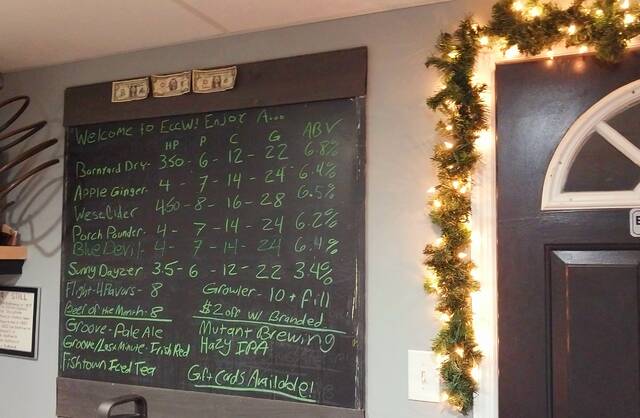 Welcome to ECCW! Enjoy A...
HP P C G ABV
Barnyard Dry - 350 - 6 - 12 - 22 6.8%
Apple Ginger - 4 - 7 - 14 - 24 6.4%
WeseCider 450 - 8 - 16 - 28 6.5%
Porch Pounder - 4 - 7 - 14 - 24 6.2%
Blue Devil - 4 - 7 - 14 - 24 6.4%
Sunny Dayzer - 3.5 - 6 - 12 - 22 3.4%
Flight - 4 Flavors - 8
Growler - 10 + fill
Beer of the Month - 8
$2 off w/ Branded
Groove - Pale Ale
Groove/Last Minute - Irish Red
Fishtown Iced Tea
Mutant Brewing
Hazy IPA
Gift Cards Available!
STILL
E